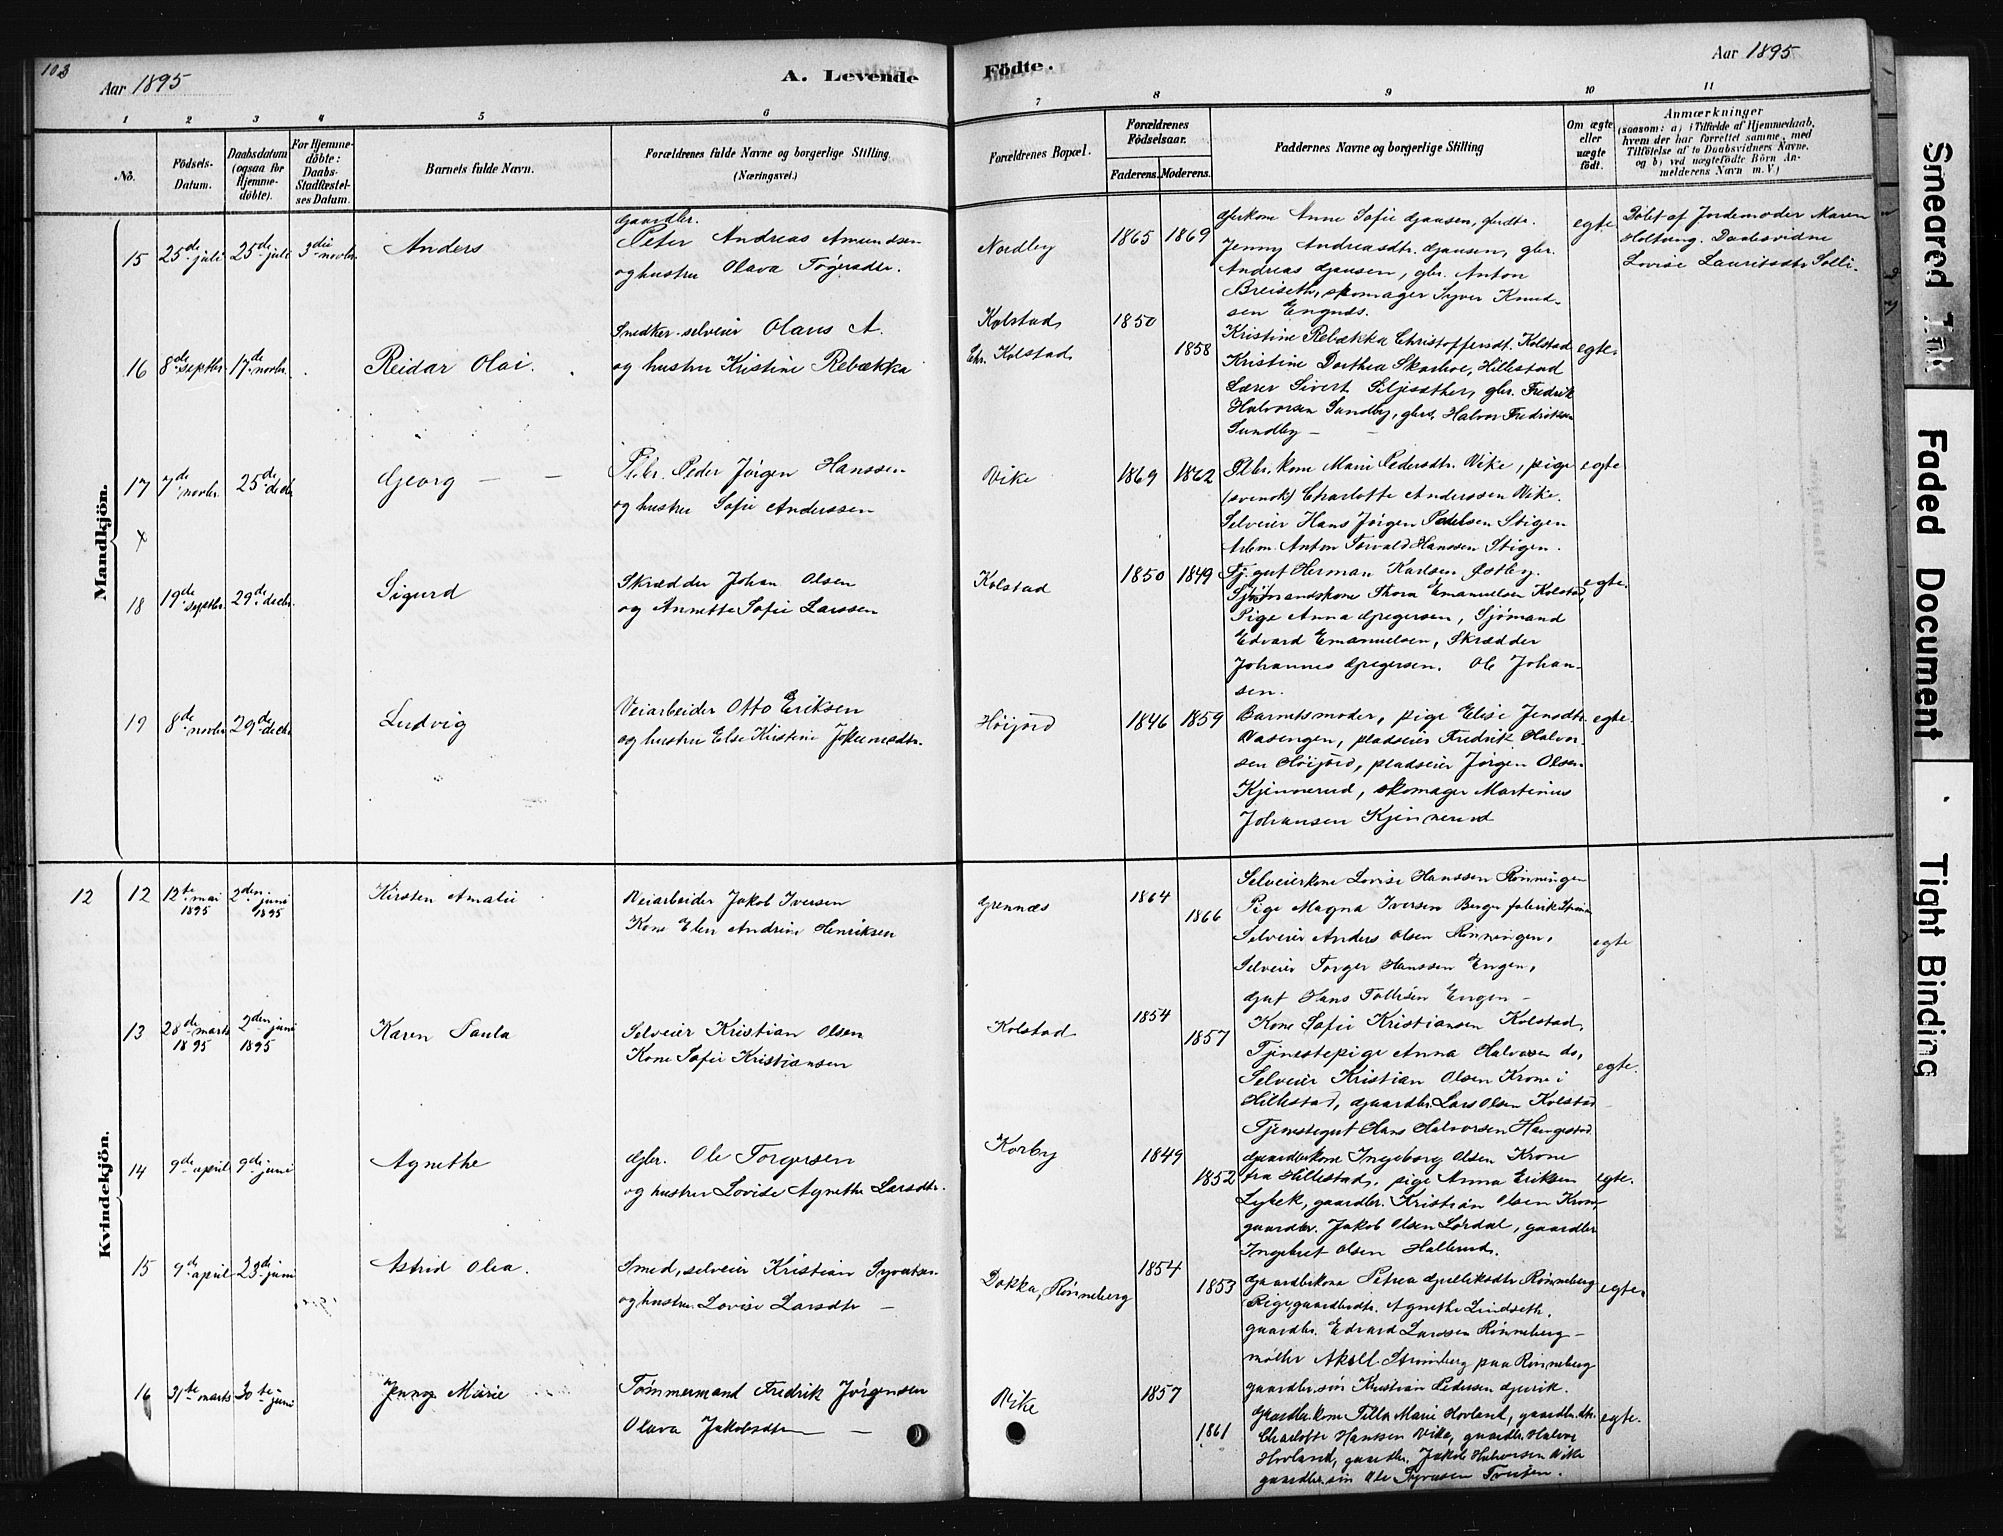 103
Aar 1895
A. Levende
Födte.
Aar 1895
1 2 3 4 5 6 7 8 9 10 11
No.
Födsels-
Datum.
Daabsdatum
(ogsaa for
Hjemme-
döbte).
For Hjemme-
döbte:
Daabs-
Stadfæstel-
ses Datum.
Barnets fulde Navn.
Forældrenes fulde Navne og borgerlige Stilling
(Næringsvei.)
Forældrenes Bopæl.
Forældrenes
Födselsaar.
Faderens. Moderens.
Faddernes Navne og borgerlige Stilling
Om ægte
eller
uægte
födt.
Anmærkninger
(saasom: a) i Tilfælde af Hjemmedaab,
hvem der har forrettet samme, med
Tilföielse af to Daabsvidners Navne.
og b) ved uægtefödte Börn An-
melderens Navn m. V.)
Mandkjön.
15 25de juli 25de juli 3die novbr. Anders
Gaardbr.
Peter Andreas Amundsen
og hustru Olava Togersdtr.
Nordby 1865 1869
Gbrkone Anne Sofie Hansen, gbrdtr.
Jenny Andreasdtr. Hansen, gbr.
Andreas Hansen, gbr. Anton
Breiseth, skomager Syver Knud-
sen Engnæs.
egte
Döbt af Jordemoder Maren
Holtung. Daabsvidne
Lovise Lauritsdtr. Solli.
16 8de septbr. 17de novbr. Reidar Olai.
Snedker selveier Olaus A.
og hustru Kristine Rebækka
Kolstad
Chr. Kolstad
1850 1858
Kristine Rebækka Christoffersdt. Kolstad
Kristine Dorthea Skarhoe, Hillestad
Lærer Sivert Siljesæther, gbr. Fredrik
Halvorsen Sundby, gbrs. Halvor Fredriksen
Sundby –
egte
17 7de novbr. 25de decbr. Georg –
Plbr. Peder Jörgen Hanssen
og hustru Sofie Anderssen
Vike 1869 1862
Plbr. kone Marie Pedersdtr. Vike, pige
(svensk) Charlotte Anderssen Vike.
Selveier Hans Jörgen Pedersen Stigen
Arbm. Anton Torvald Hanssen Stigen.
egte
18 19de septbr. 29de decbr. Sigurd
Skrædder Johan Olsen
og Annette Sofie Larssen
Kolstad 1850 1849
Tj. gut Herman Karlsen Østby.
Sjömandskone Thora Emanuelsen Kolstad,
Pige Anna Gregersen, Sjömand
Edvard Emanuelsen, Skrædder
Johannes Gregersen. Ole Johan-
sen.
egte.
19 8de novbr. 29de decbr. Ludvig
Veiarbeider Otto Eriksen
og hustru Else Kirstine Jokumsdtr.
Höijord 1846 1859
Barnets moder, pige Elise Jensdtr.
Vasengen, pladseier Fredrik Halvor-
sen Höijord, pladseier Jörgen Olsen
Kjennerud, skomager Martinius
Johansen Kjennerud
egte.
Kvindekjön.
12 12 12te mai 1895 2den juni 1895 Kirsten Amalie
Veiarbeider Jakob Iversen
Kone Elen Andrine Henriksen
Grennæs 1864 1866
Selveierkone Lovise Hanssen Rönningen
Pige Magna Iversen Berger fabrik
Selveier Anders Olsen Rönningen,
Selveier Torger Hanssen Engen,
Gut Hans Tollefsen Engen –
egte
13 28de marts 1895 2den juni 1895 Karen Paula
Selveier Kristian Olsen
Kone Sofie Kristiansen
Kolstad 1854 1857
Kone Sofie Kristiansen Kolstad,
Tjenestepige Anna Halvorsen do,
Selveier Kristian Olsen Krone i
Hillestad, gaardbr. Lars Olsen Kolstad
Tjenestegut Hans Halvorsen Haugestad
egte.
14 9de april 9de juni Agnethe
Gbr. Ole Torgersen
og hustru Lovise Agnethe Larsdtr.
Korby 1849 1852
Gaardbrkone Ingeborg Olsen Krone
fra Hillestad, pige Anna Eriksen
Lybek, gaardbr. Kristian Olsen Krone
gaardbr. Jakob Olsen Lördal, gaardbr
Ingebret Olsen Hallerud.
egte.
15 9de april 23de juni Astrid Olea.
Smed, selveier Kristian Syvertsen
og hustru Lovise Larsdtr –
Dokka, Rönneberg 1854 1853
Gaardbrkone Petrea Gulliksdtr Rönneberg
Pige, gaardbrdtr. Agnethe Lindseth.
gaardbr. Edvard Larssen Rönneberg –
möller Aksell Strömberg paa Rönneberg
gaardbr. sön Kristian Pedersen Gjerik.
egte.
16 31te marts 30te juni Jenny Marie
Tömmermand Fredrik Jörgensen
Olava Jakobsdtr –
Vike 1857 1861
Gaardbr. kone Tilla Marie Hovland, gaardbr. dtr.
Charlotte Hanssen Vike, gaardbr. Halvor
Hovland, gaardbr. Jakob Halvorsen Vike
gaardbr. sön Ole Syversen Tveiten.
egte.
Smeared Ink
Faded Document
Tight Binding